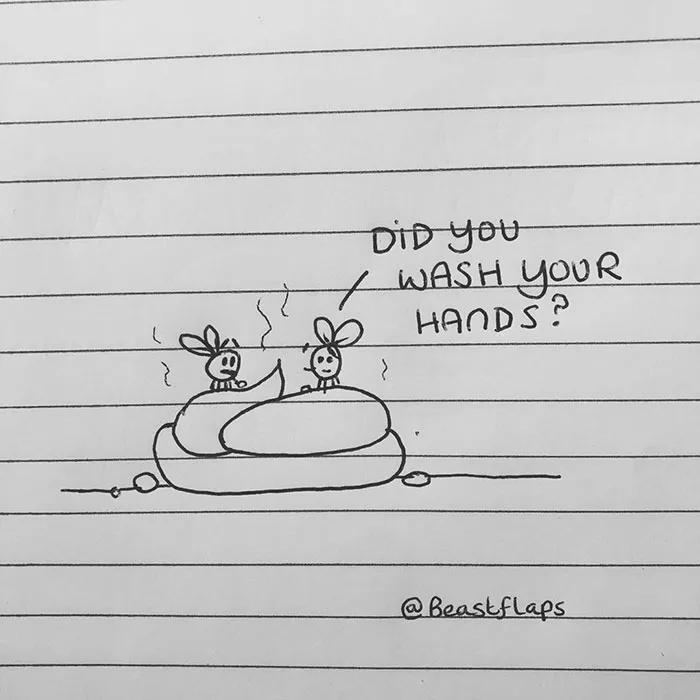 DiD YOU
WASH YOUR
HANDS?
@Beastflaps